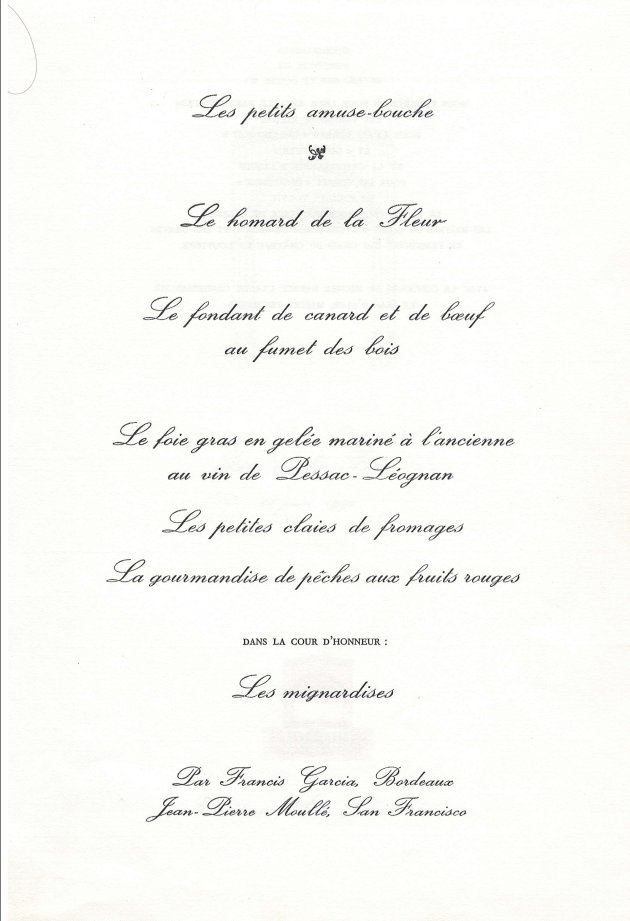 Les petits amuse-bouche
Le homard de la Fleur
Le fondant de canard et de bœuf
au fumet des bois
Le foie gras en gelée mariné à l'ancienne
au vin de Pessac-Léognan
Les petites claies de fromages
La gourmandise de pêches aux fruits rouges
DANS LA COUR D'HONNEUR :
Les mignardises
Par Francis Garcia, Bordeaux
Jean-Pierre Moullé, San Francisco